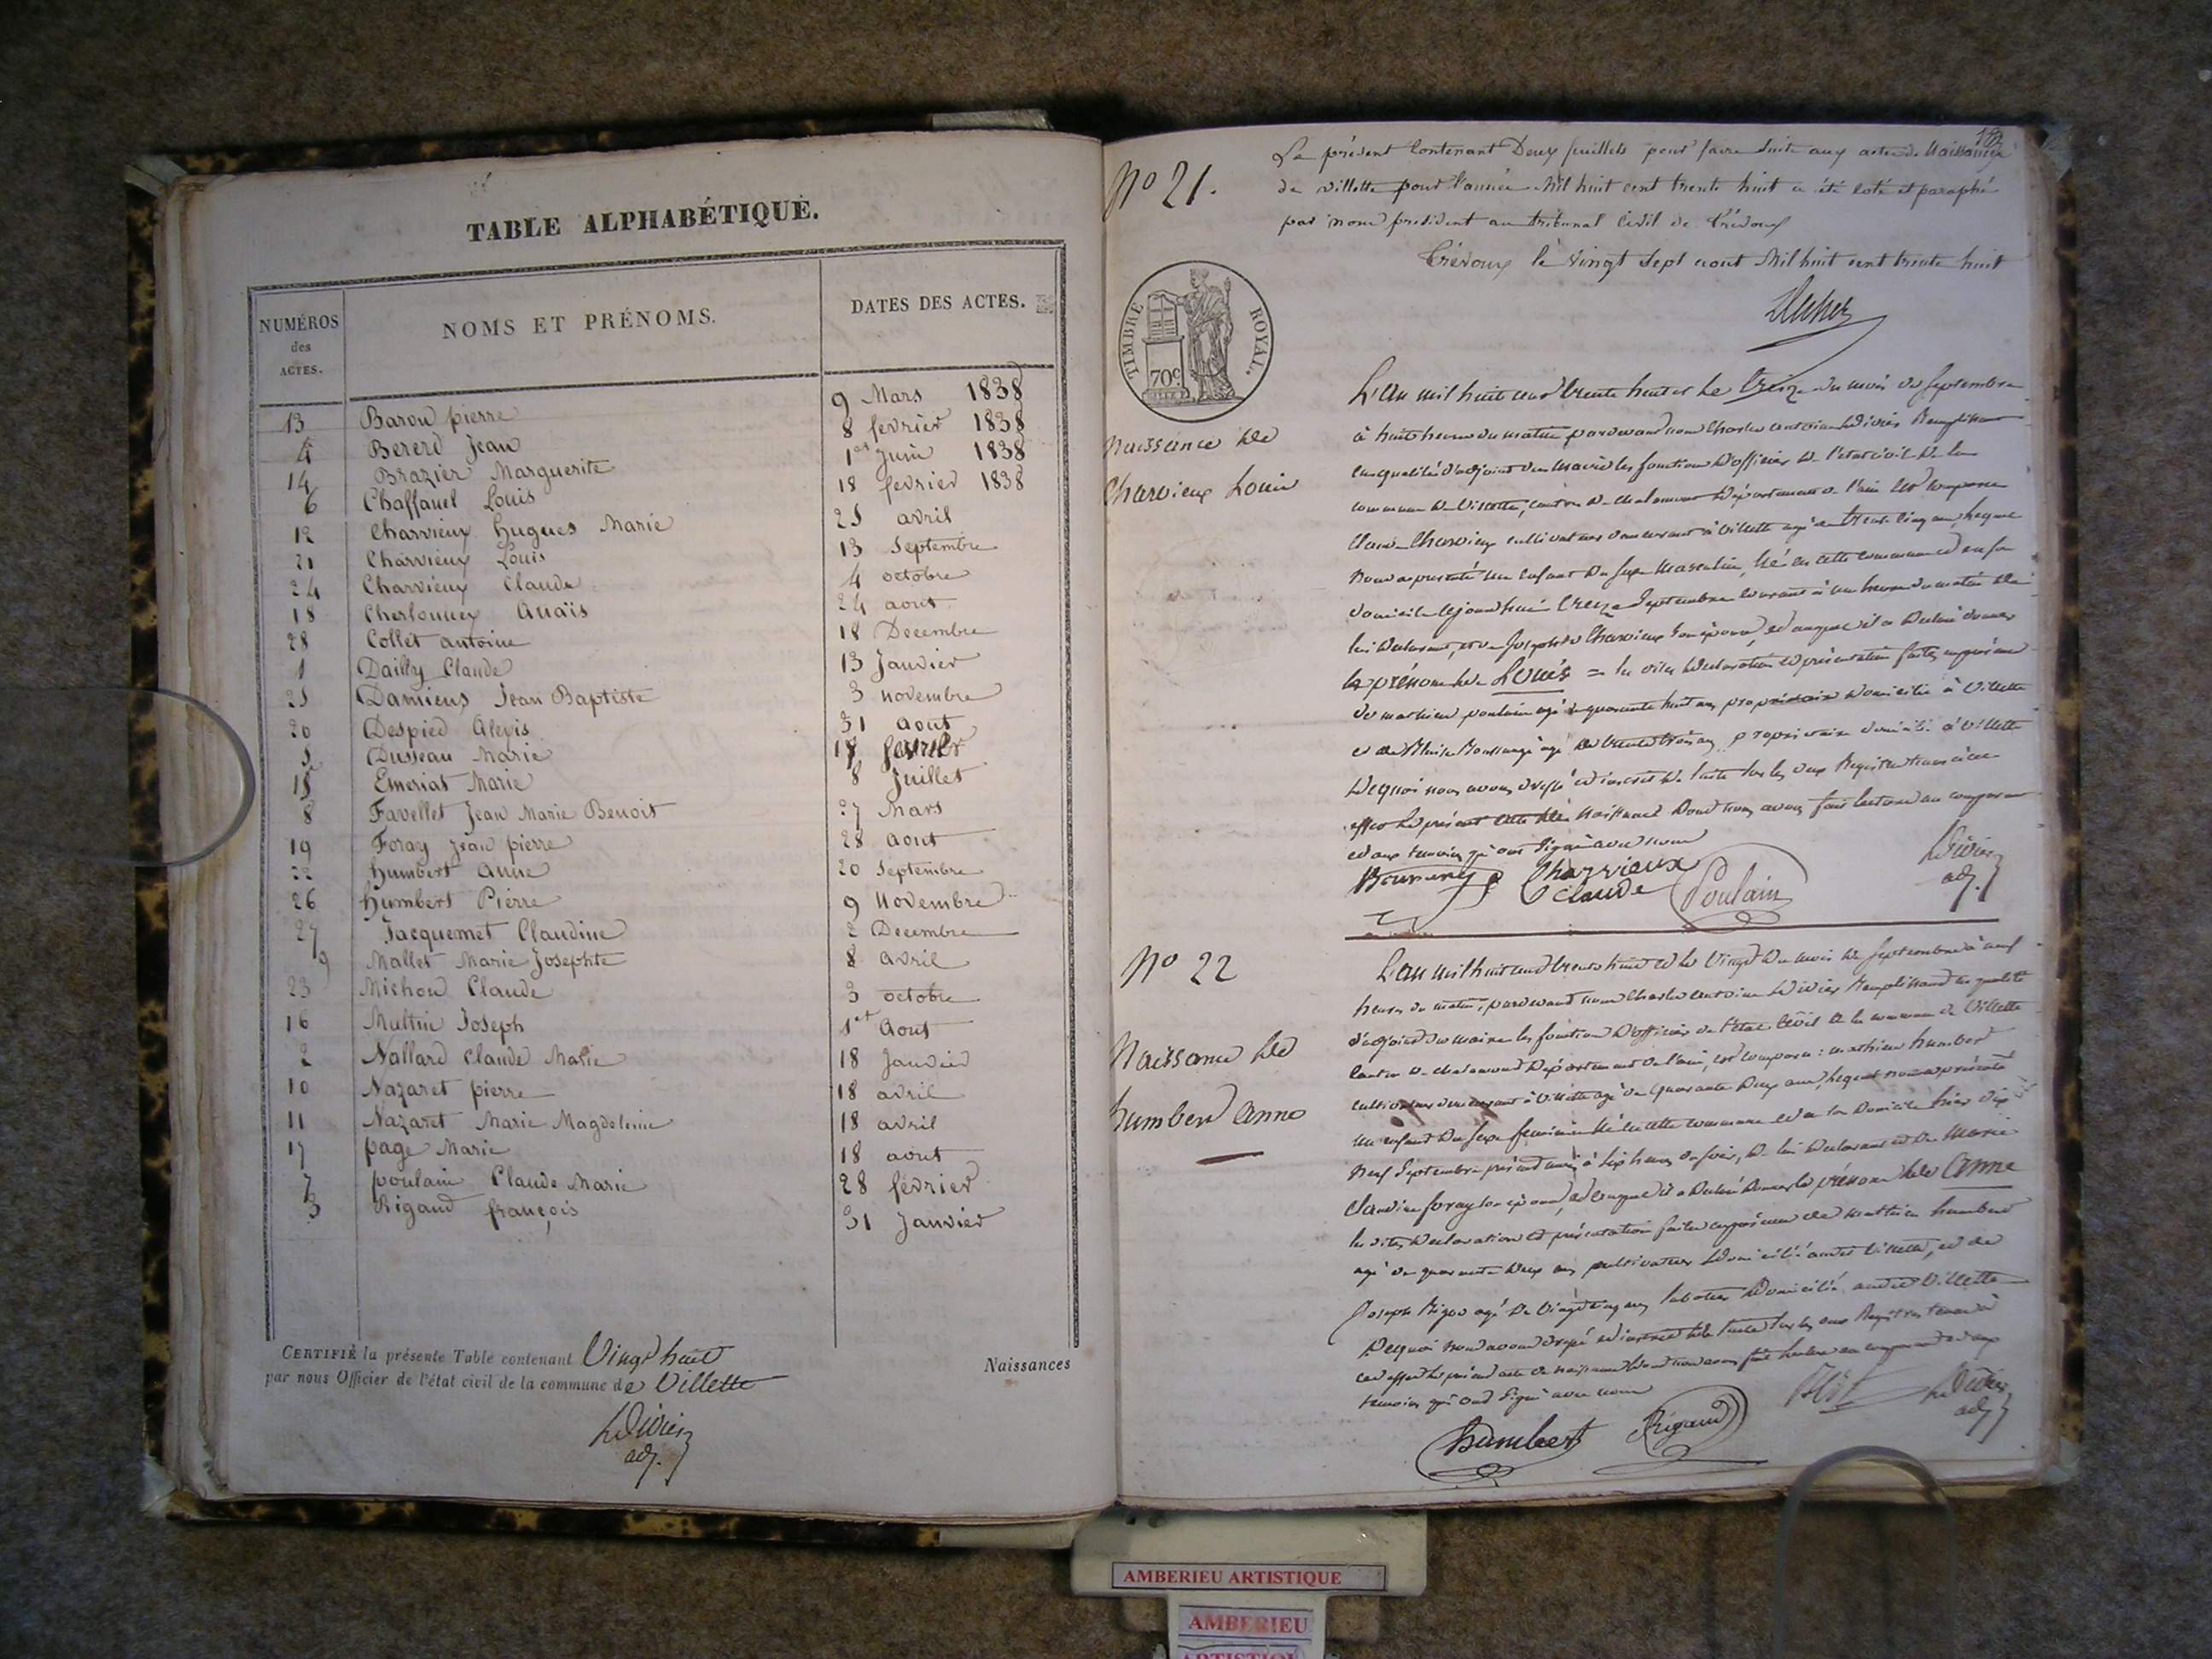 TABLE ALPHABÉTIQUE.
NUMÉROS des ACTES. NOMS ET PRÉNOMS. DATES DES ACTES.
13 Barou pierre 9 Mars 1838
4 Bererd Jean 8 fevrier 1838
14 Brazier Marguerite 1er Juin 1838
6 Chaffanel Louis 18 fevrier 1838
12 Charvieux hugues Marie 25 avril
21 Charvieux Louis 13 Septembre
24 Charvieux Claude 4 octobre
18 Anaïs 24 aout
28 Collet antoine 18 Decembre
1 Dailly Claude 13 Janvier
25 Damiens Jean Baptiste 3 novembre
20 Despied Alexis 31 aout
5 Dusseau Marie fevrier
15 Emeriat Marie 8 Juillet
8 Favellet Jean Marie Benoit 27 Mars
19 Foray Jean pierre 28 aout
22 humbert anne 20 Septembre
26 humbert Pierre 9 Novembre
27 Jacquemet Claudine 2 Decembre
9 Mallet Marie Josephte 8 avril
23 Michon Claude 3 octobre
16 Joseph 1er Aout
2 Nallard Claude Marie 18 Janvier
10 Nazaret pierre 18 avril
11 Nazaret Marie Magdeleine 18 avril
17 page Marie 18 aout
7 poulain Claude Marie 28 février
3 Rigaud françois 31 Janvier
CERTIFIÉ la présente Table contenant Vingt huit Naissances
par nous Officier de l'état civil de la commune de Villette
adj.
Le présent Contenant Deux feuillets pour faire Suite aux actes de Naissance
de villette pour l'année Mil huit cent trente huit a été coté et paraphé
par nous president au tribunal Civil de Trévoux
Trévoux le vingt Sept aout Mil huit cent trente huit
No 21.
TIMBRE ROYAL.
70c
Naissance de
Charvieux Louis
L'an mil huit cent trente huit et le treize du mois de Septembre
à huit heures du matin pardevant nous Charles antoine Remplissant
en qualité d'adjoint du Maire les fonctions d'officier de l'etat civil de la
commune de Villette, canton de chalamont Département de l'ain est comparu
Claude Charvieux cultivateur demeurant à Villette agé de trente cinq ans, lequel
Nous a présenté un Enfant du Sexe Masculin, Né en cette commune et en son
domicile aujourdhui treize Septembre courant à une heure du matin de
lui Déclarant, et de Josephte Charvieux son épouse, et auquel il a Déclaré donner
le prénom de Louis = les dites Déclaration et présentation faites en présence
de mathieu poulain agé de quarante huit ans, propriétaire domicilié à Villette
et de Blaise agé de trente trois ans, propriétaire domicilié à Villette
De quoi nous avons dressé et inscrit de Suite Sur les deux Registres tenus à cet
effet le présent acte de Naissance Dont nous avons fait lecture au comparant
et aux temoins qui ont Signé avec nous
Charvieux
Claude
Poulain
adj.
No 22
Naissance de
humbert anne
L'an mil huit cent trente huit et le Vingt du mois de Septembre à neuf
heures du matin, pardevant nous Charles antoine Remplissant en qualité
d'adjoint du maire les fonctions D'officier de l'Etat Civil de la commune de Villette
Canton de chalamont Département de l'ain, est comparu : mathieu humbert
cultivateur demeurant à Villette agé de quarante Deux ans, lequel nous a présenté
un enfant Du Sexe feminin Né en cette commune et en son Domicile hier Dix
Neuf Septembre présent mois à Six heures du soir, De lui Déclarant et De Marie
Claudine foray son épouse, et auquel il a Déclaré Donner le prénom de Anne
les dites Declaration et présentation faites en présence de mathieu humbert
agé de quarante Deux ans cultivateur Domicilié audit Villette, et de
Joseph agé de Vingt cinq ans Domicilié audit Villette
De quoi nous avons dressé et inscrit de Suite Sur les deux Registres tenus à
cet effet le présent acte de naissance Dont nous avons fait lecture au comparant et aux
temoins qui ont Signé avec nous
humbert
Rigaud
adj
AMBERIEU ARTISTIQUE
AMBERIEU
ARTISTIQUE